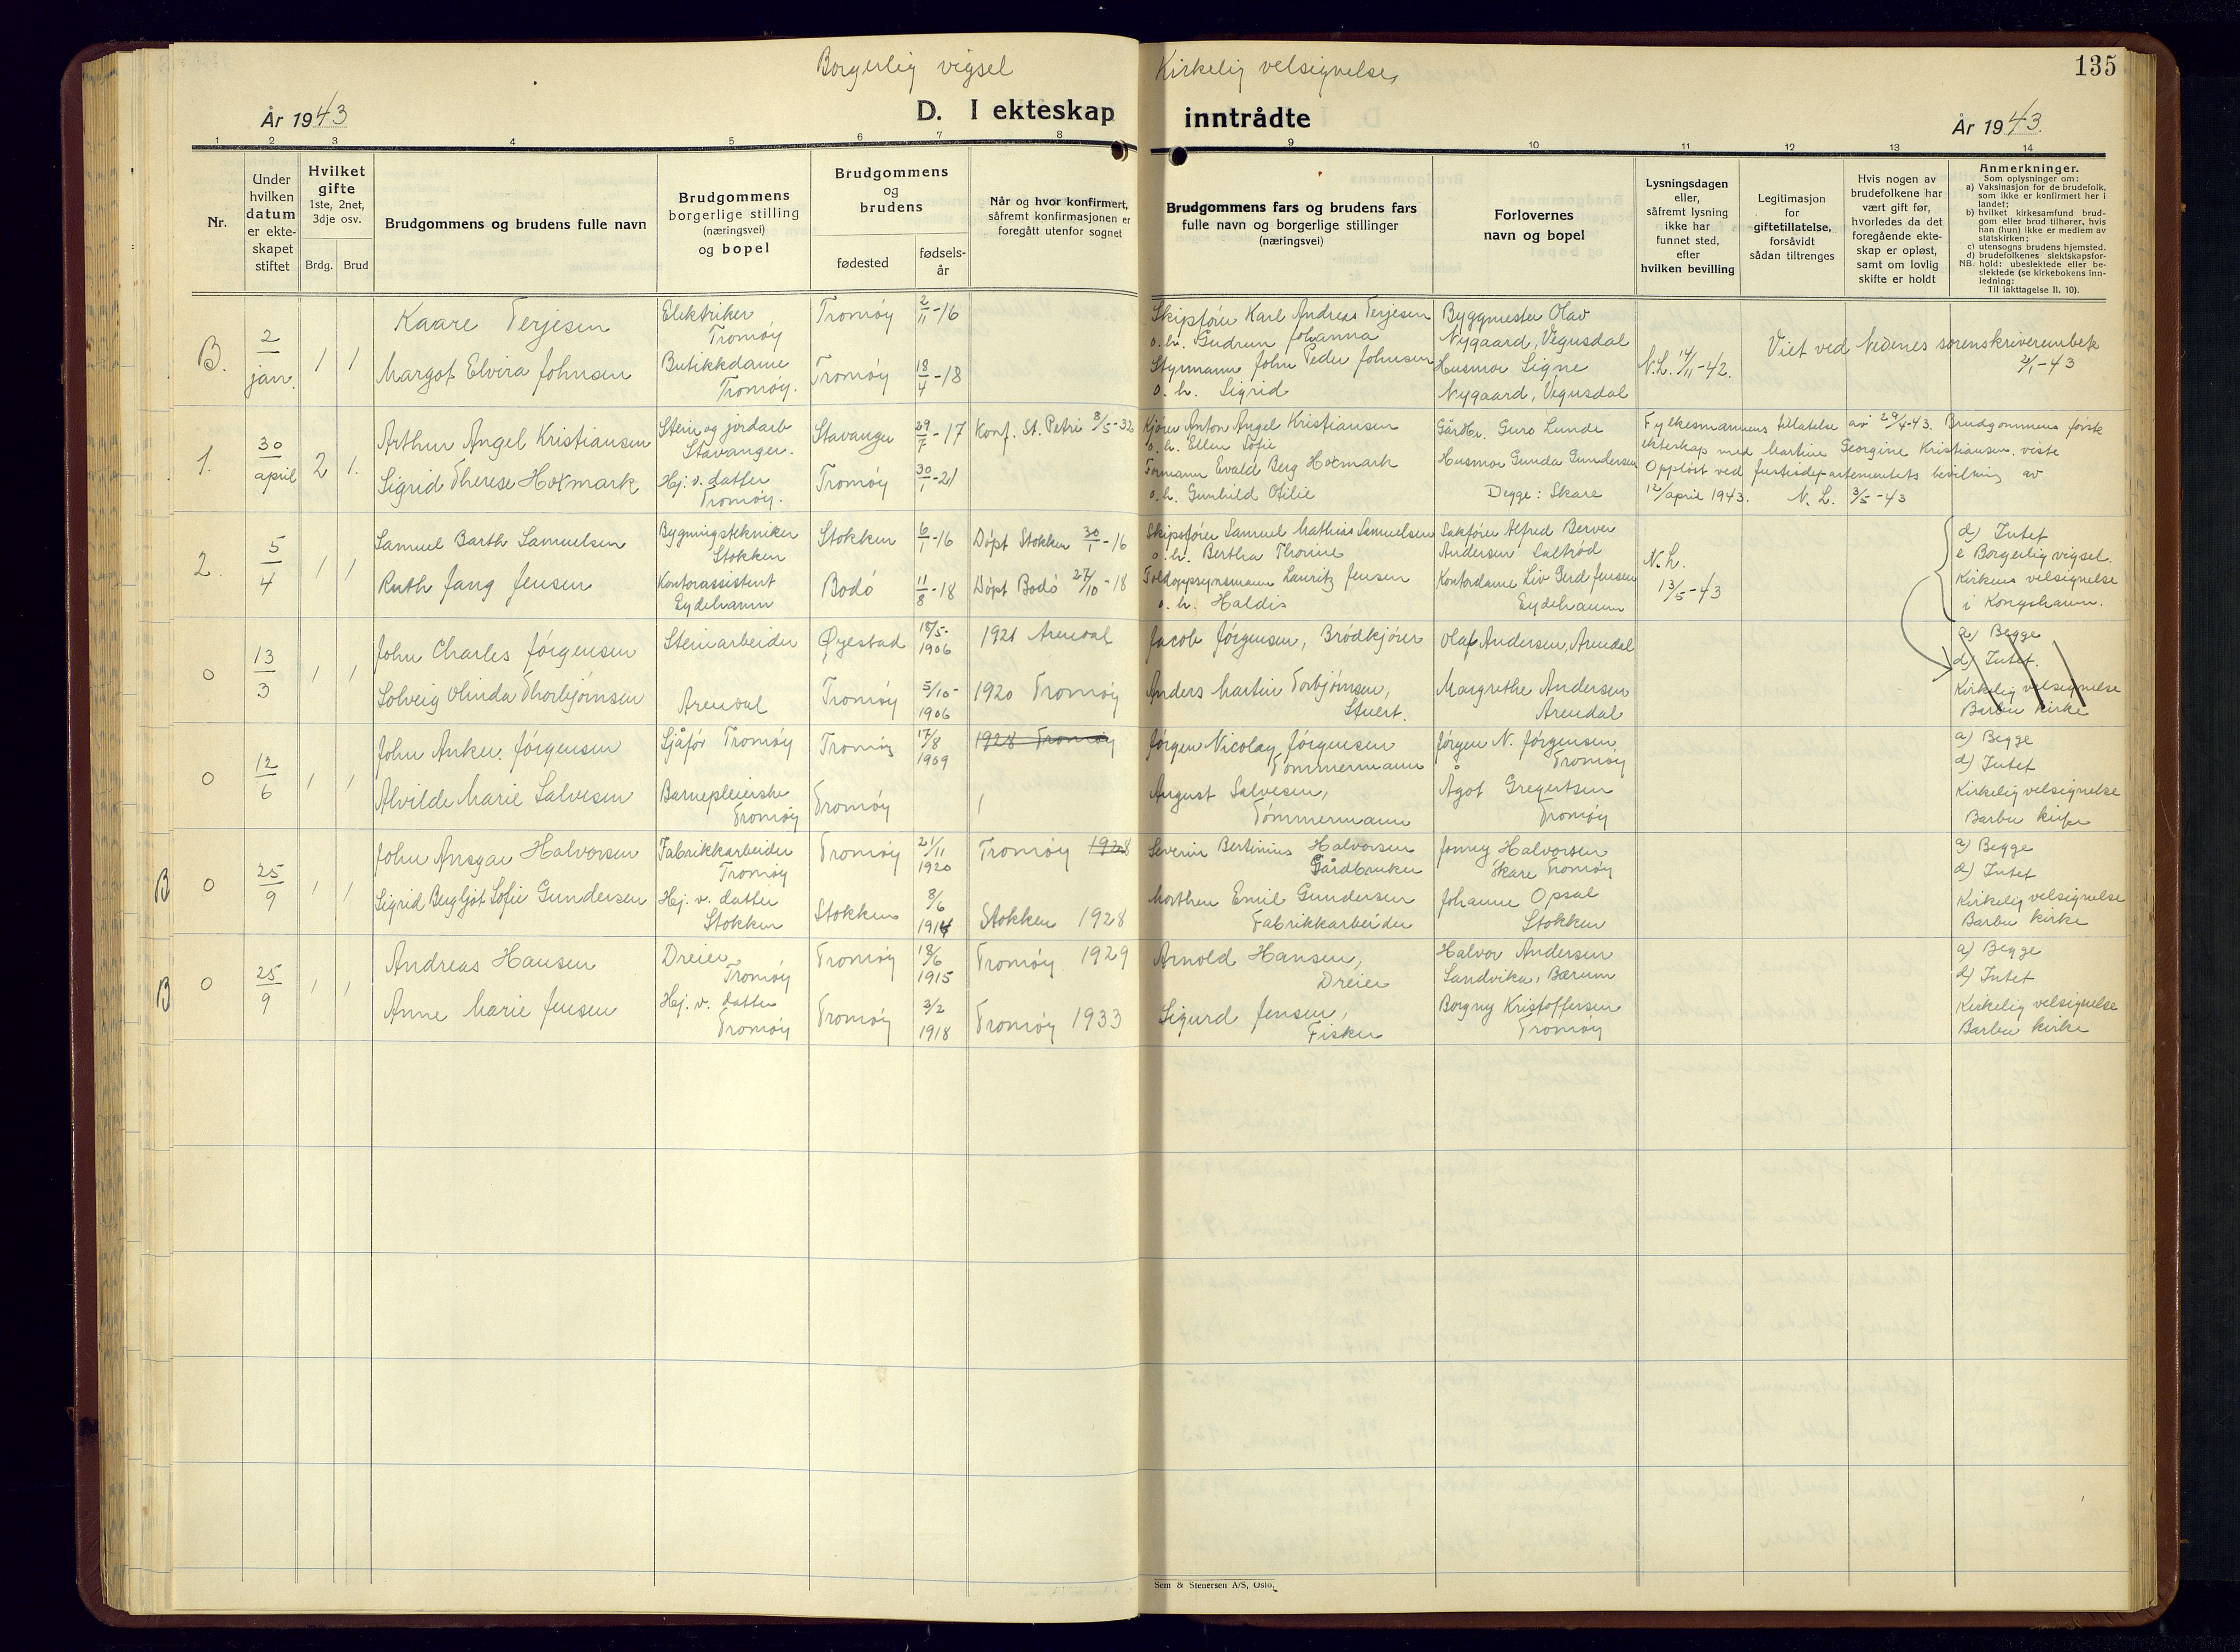 Borgerlig vigsel
Kirkelig velsignelse,
135
År 1943
D. I ekteskap
inntrådte
År 1943.
1 2 3 4 5 6 7 8 9 10 11 12 13 14
Nr.
Under
hvilken
datum
er ekte-
skapet
stiftet
Hvilket
gifte
1ste, 2net,
3dje osv.
Brdg. Brud
Brudgommens og brudens fulle navn
Brudgommens
borgerlige stilling
(næringsvei)
og bopel
Brudgommens
og
brudens
fødested
fødsels-
år
Når og hvor konfirmert,
såfremt konfirmasjonen er
foregått utenfor sognet
Brudgommens fars og brudens fars
fulle navn og borgerlige stillinger
(næringsvei)
Forlovernes
navn og bopel
Lysningsdagen
eller,
såfremt lysning
ikke har
funnet sted,
efter
hvilken bevilling
Legitimasjon
for
giftetillatelse,
forsåvidt
sådan tiltrenges
Hvis nogen av
brudefolkene har
vært gift før,
hvorledes da det
foregående ekte-
skap er opløst,
samt om lovlig
skifte er holdt
Anmerkninger.
Som oplysninger om:
a) Vaksinasjon for de brudefolk,
som ikke er konfirmert her i
landet;
b) hvilket kirkesamfund brud-
gom eller brud tilhører, hvis
han (hun) ikke er medlem av
statskirken;
c) utensogns brudens hjemsted.
d) brudefolkenes slektskapsfor-
NB. hold: ubeslektede eller be-
slektede (se kirkebokens inn-
ledning:
Til iakttagelse II. 10).
B.
2/jan.
1 1
Kaare Terjesen
Margot Elvira Johnsen
Elektriker
Tromøy
Butikkdame
Tromøy.
Tromøy 2/11-16
Tromøy 18/4-18
Skipsfører Karl Andreas Terjesen
o. h. Gudrun Johanna
Styrmann John Peder Johnsen
o. h. Sigrid
Byggmester Olav
Nygaard, Vegusdal
Husmor Signe
Nygaard, Vegusdal
N.L. 14/11-42.
Viet ved Nedenes sorenskriverembete
2/1-43
1.
30/april
2 1.
Arthur Angel Kristiansen
Sigrid Therese Holmark
Stein og jordarb
Stavanger.
Hj. v. datter
Tromøy.
Stavanger 29/7-17
Tromøy 30/1-21
Konf. St. Petri 8/5-32
Kjører Anton Angel Kristiansen
o. h. Ellen Sofie
Formann Evald Berg Holmark
o. h. Gunhild Otilie
Gårdbr. Guro Lunde
Husmor Gunda Gundersen
Begge: Skare
Fylkesmannens tillatelse av 29/4-43. Brudgommens første
ekteskap med Martine Georgine Kristiansen, viste
Oppløst ved justisdepartementets bevilning av
12/april 1943. N. L. 3/5-43
2.
5/4
1 1
Samuel Barth Samuelsen
Ruth Jang Jensen
Bygningstekniker
Stokken
Kontorassistent
Eydehavn
Stokken 6/1-16
Bodø 11/8-18
Døpt Stokken 30/1-16
Døpt Bodø 27/10-18
Skipsfører Samuel Mathias Samuelsen
o. h. Bertha Thonine
Tolloppsynsmann Lauritz Jensen
o. h. Haldis
Sakfører Alfred Berver
Andersen Saltrød
Kontordame Liv Gerd Jensen
Eydehavn
N. L.
13/5-43
d) Intet
e Borgerlig vigsel.
Kirkens velsignelse
i Kongshavn.
0
13/3
1 1
John Charles Jørgensen
Solveig Olinda Thorbjørnsen
Steinarbeider
Arendal
Øyestad 18/5-1906
Tromøy 5/10-1906
1921 Arendal
1920 Tromøy
Jacob Jørgensen, Brødkjører
Anders Martin Torbjørnsen,
Stuert.
Olaf Andersen, Arendal
Margrethe Andersen
Arendal
a) Begge
d) Intet.
Kirkelig velsignelse
Barbu kirke
0
12/6
1 1
John Anker. Jørgensen
Alvilde Marie Salvesen
Sjåfør Tromøy
Barnepleierske
Tromøy
Tromøy 17/8 1909
Tromøy
1928 Tromøy
Jørgen Nicolay Jørgensen
Tømmermann
August Salvesen,
Tømmermann
Jørgen N. Jørgensen,
Tromøy
Ågot Gregertsen
Tromøy
a) Begge
d) Intet
Kirkelig velsignelse
Barbu kirke
B 0
25/9
1 1
John Ansgar Halvorsen
Sigrid Bergljot Sofie Gundersen
Fabrikkarbeider
Tromøy
Hj. v. datter
Stokken
Tromøy 21/11 1920
Stokken 8/6 1914
Tromøy 1928
Stokken 1928
Severin Bertinius Halvorsen
Gårdbruker
Morthen Emil Gundersen
Fabrikkarbeider
Jonny Halvorsen
Skare Tromøy
Johanne Opsal
Stokken
a) Begge
d) Intet
Kirkelig velsignelse
Barbu kirke
B 0
25/9
1 1
Andreas Hansen
Anne Marie Jensen
Dreier
Tromøy
Hj. v. datter
Tromøy
Tromøy 18/6 1915
Tromøy 3/2 1918
Tromøy 1929
Tromøy 1933
Arnold Hansen,
Dreier
Sigurd Jensen,
Fisker
Halvor Andersen
Sandvika, Bærum
Borgny Kristoffersen
Tromøy
a) Begge
d) Intet
Kirkelig velsignelse
Barbu kirke
Sem & Stenersen A/S, Oslo.